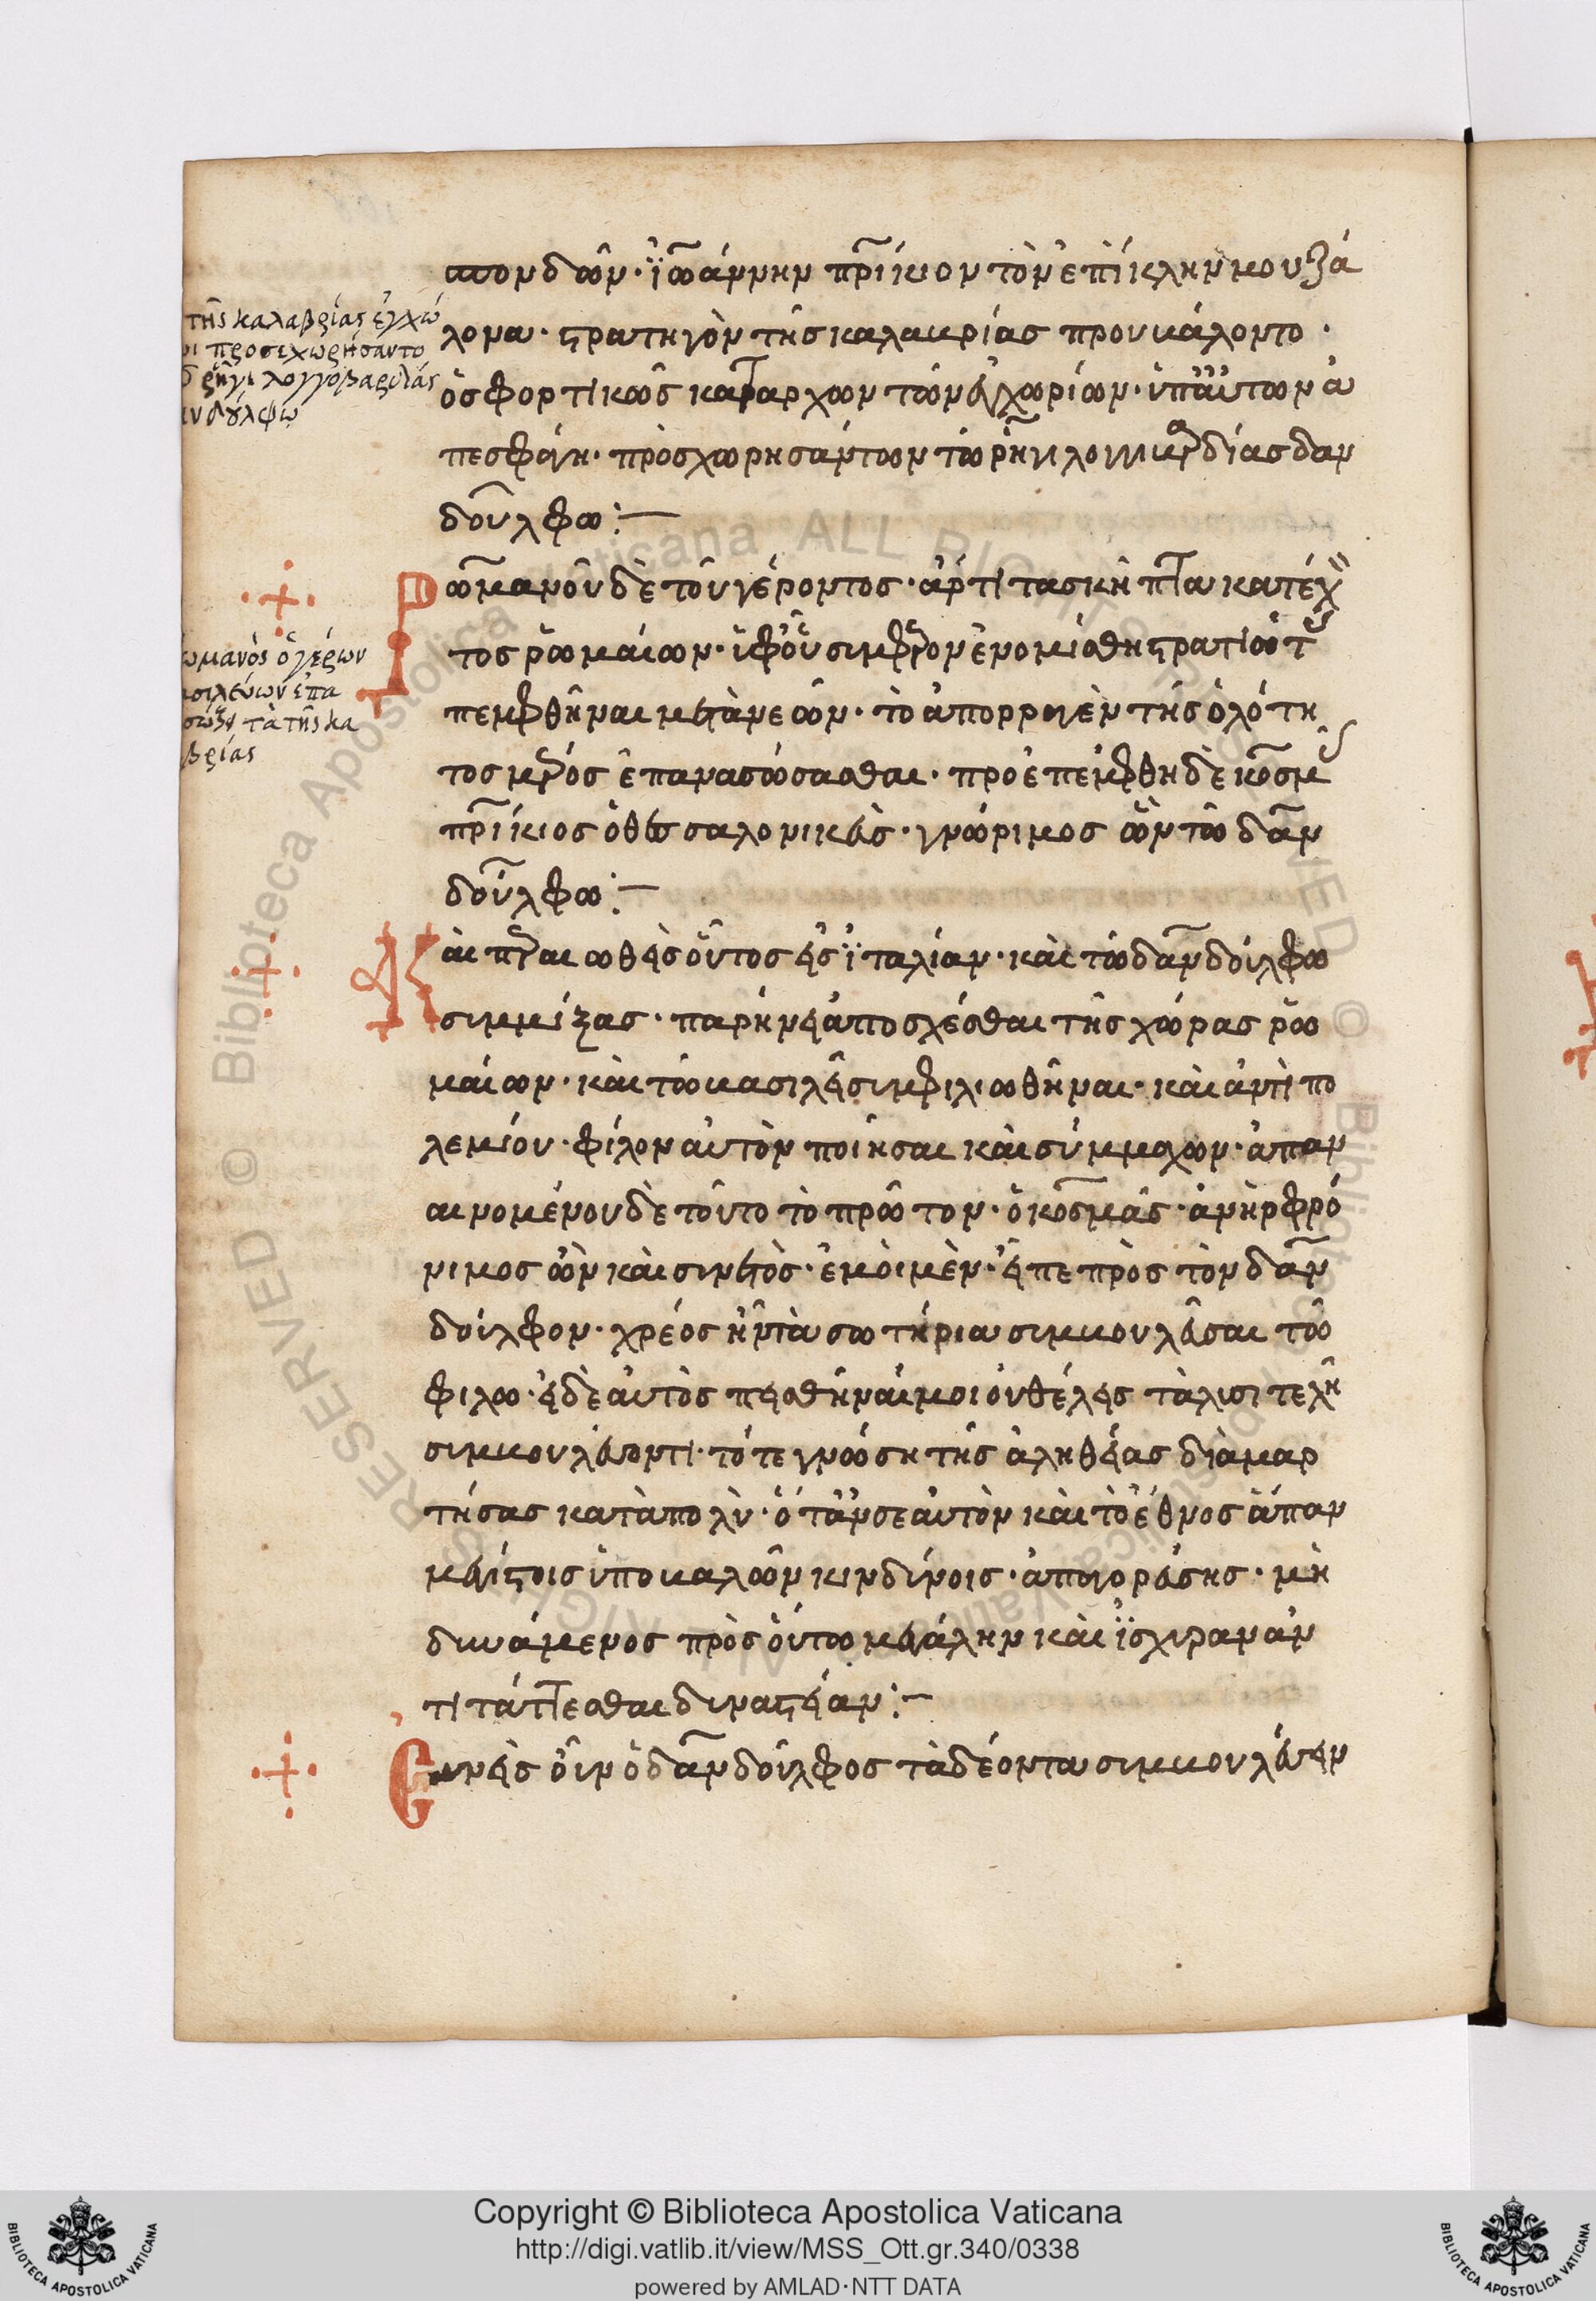 σπονδῶν· ἰωάννην πρίκιον τὸν ἐπίκλην μουζά
λονα· στρατηγὸν τῆς καλαβρίας προυβάλοντο·
ὃς φορτικῶς κατάρχων τῶν ἐγχωρίων· ὑπ' αὐτῶν ἀ
πεσφάγη· προσχωρησάντων τῷ ῥηγὶ λογγιβαρδίας δαν
δούλφω:—
Ρωμανοῦ δὲ τοῦ γέροντος· ἄρτι τὰ σκῆπτρα κατέχον
τος ῥωμαίων· ὑφ' οὗ συμφέρον ἐνομίσθη στρατιώτας
πεμφθῆναι μετὰ νεῶν· τὸ ἀπορραγὲν τῆς ὁλότη
τος μέρος ἐπανασώσασθαι· προεπέμφθη δὲ κοσμᾶς
πρίκιος ὁ θεσσαλονικεὺς· γνώριμος ὢν τῷ δαν
δούλφω:—
Καὶ περαιωθεὶς οὗτος εἰς ἰταλίαν· καὶ τῷ δανδούλφω
συμμίξας· παρήνει ἀποσχέσθαι τῆς χώρας ῥω
μαίων· καὶ τῷ βασιλεῖ συμφιλιωθῆναι· καὶ ἀντὶ πο
λεμίου· φίλον αὐτὸν ποιῆσαι καὶ σύμμαχον· ἀπαν
αινομένου δὲ τοῦτο τὸ πρῶτον· ὁ κοσμᾶς· ἀνὴρ φρό
νιμος ὢν καὶ συνετὸς· ἐμοὶ μὲν· εἶπε πρὸς τὸν δαν
δούλφον· χρέος ἦν τὰ σωτήρια συμβουλεῦσαι τῷ
φίλω· εἰ δὲ αὐτὸς πεισθῆναί μοι οὐ θέλεις τὰ λυσιτελῆ
συμβουλεύοντι· τότε γνώση τῆς ἀληθείας διαμαρ
τήσας κατὰ πολὺ· ὅταν σεαυτὸν καὶ τὸ ἔθνος ἅπαν
μεγίστοις ὑποβαλὼν κινδύνοις· ἀπαγορεύσης· μὴ
δυνάμενος πρὸς οὕτω μεγάλην καὶ ἰσχυρὰν ἀν
τιτάττεσθαι δυναστείαν:—
Συνεὶς οὖν ὁ δανδοῦλφος τὰ δέοντα συμβουλεύειν
τῆς καλαβρίας ἐγχώ
ρι προσεχωρήσαντο
ῥηγὶ λογγοβαρδίας
ανδούλφω
ωμανὸς ὁ γέρων
ασιλεύων ἐπα
σώζει τὰ τῆς κα
βρίας
Copyright © Biblioteca Apostolica Vaticana
http://digi.vatlib.it/view/MSS_Ott.gr.340/0338
powered by AMLAD·NTT DATA